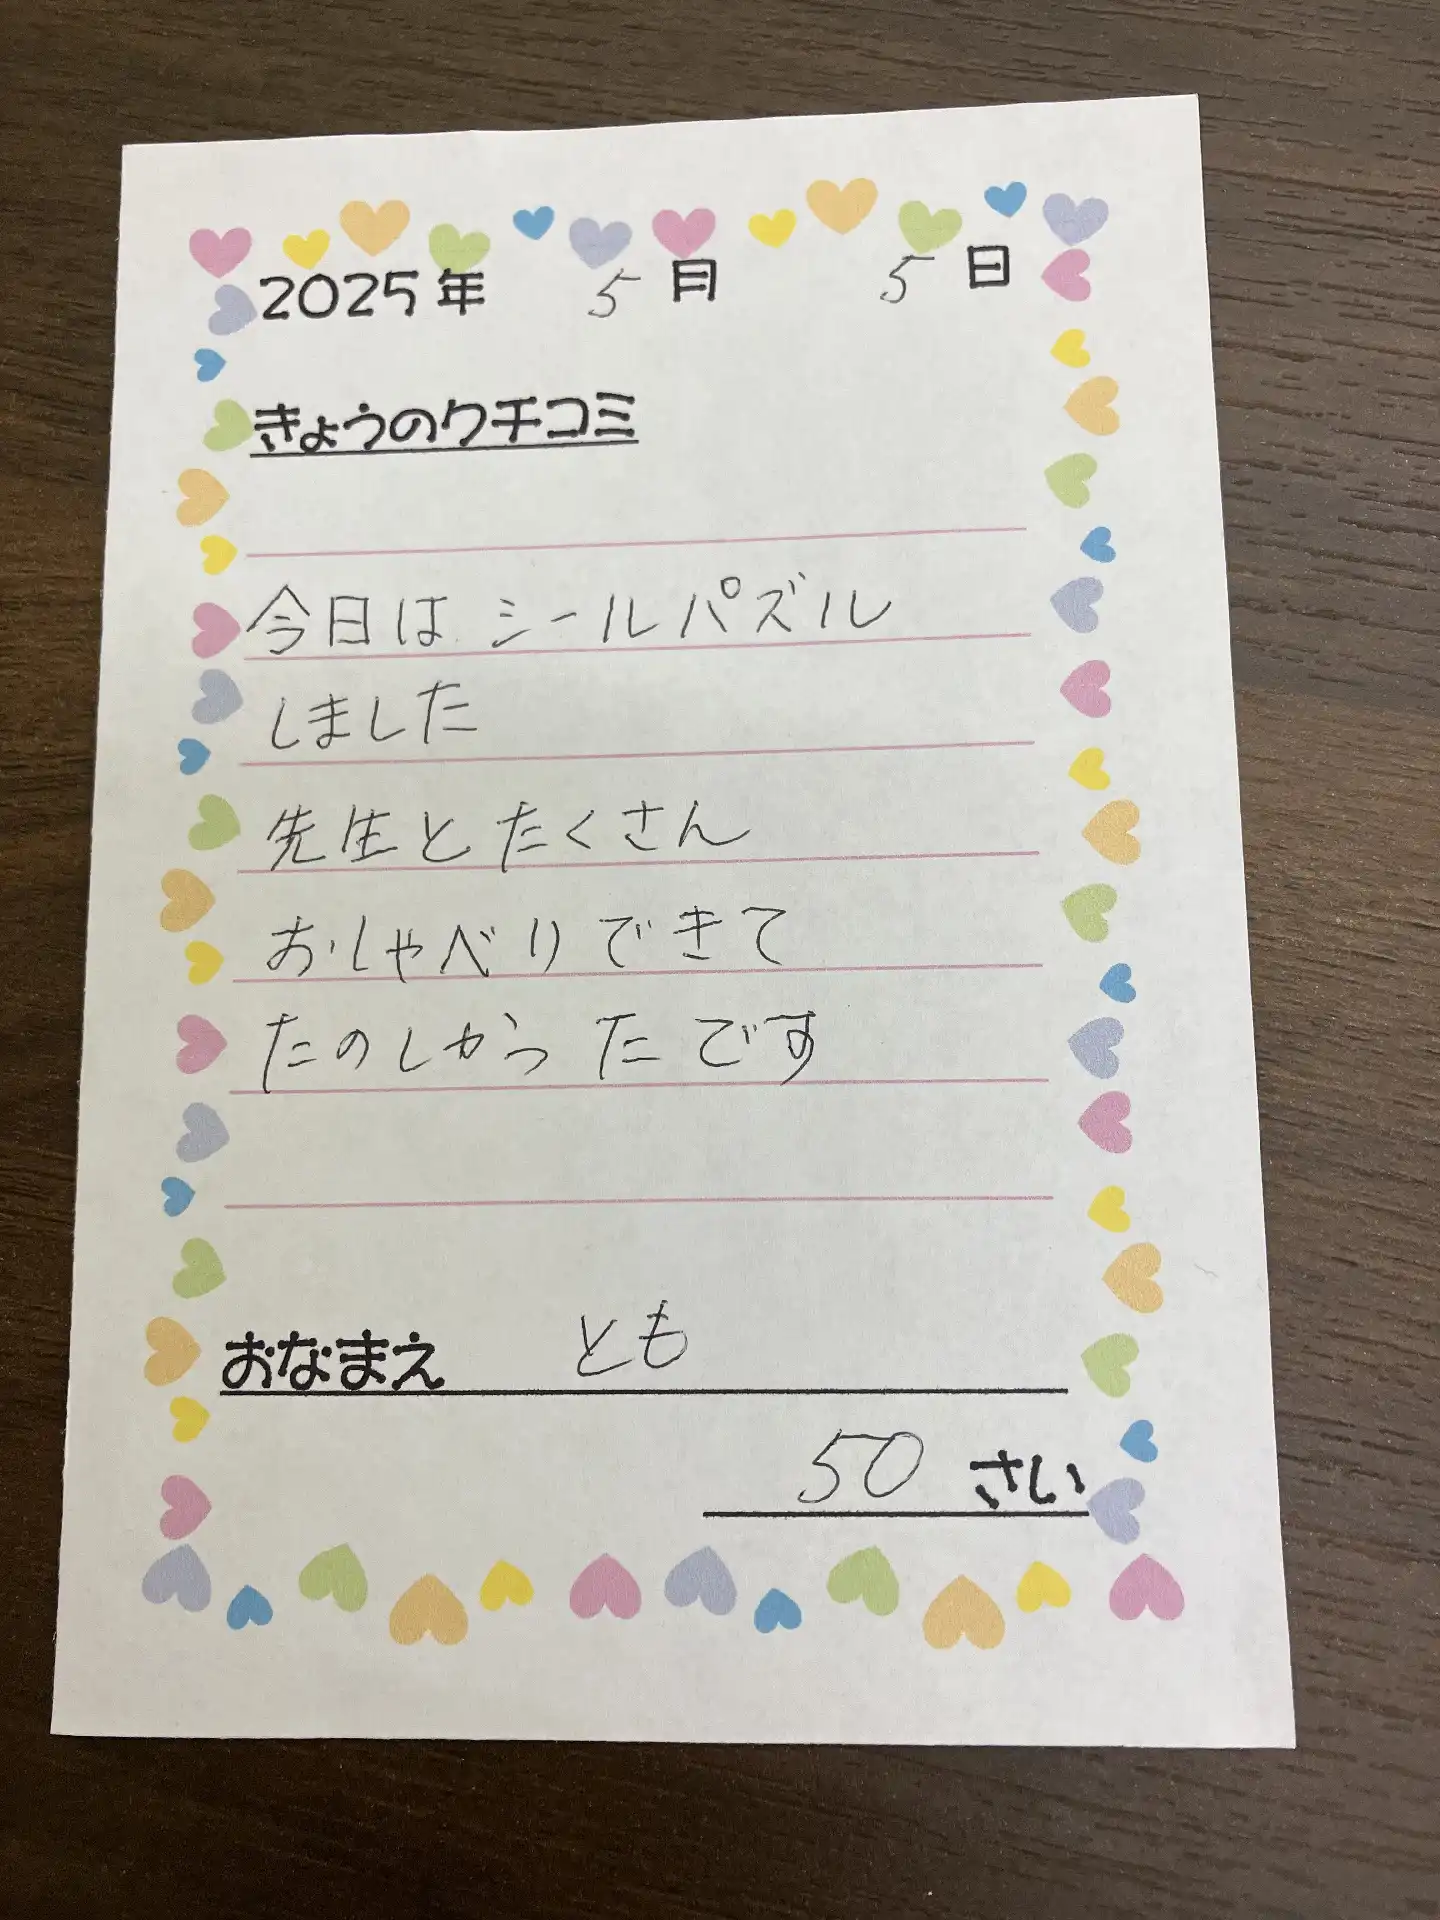 2025年 5月 5日
きょうのクチコミ
今日は シールパズル
しました
先生と たくさん
おしゃべりできて
たのしかったです
おなまえ とも
50 さい